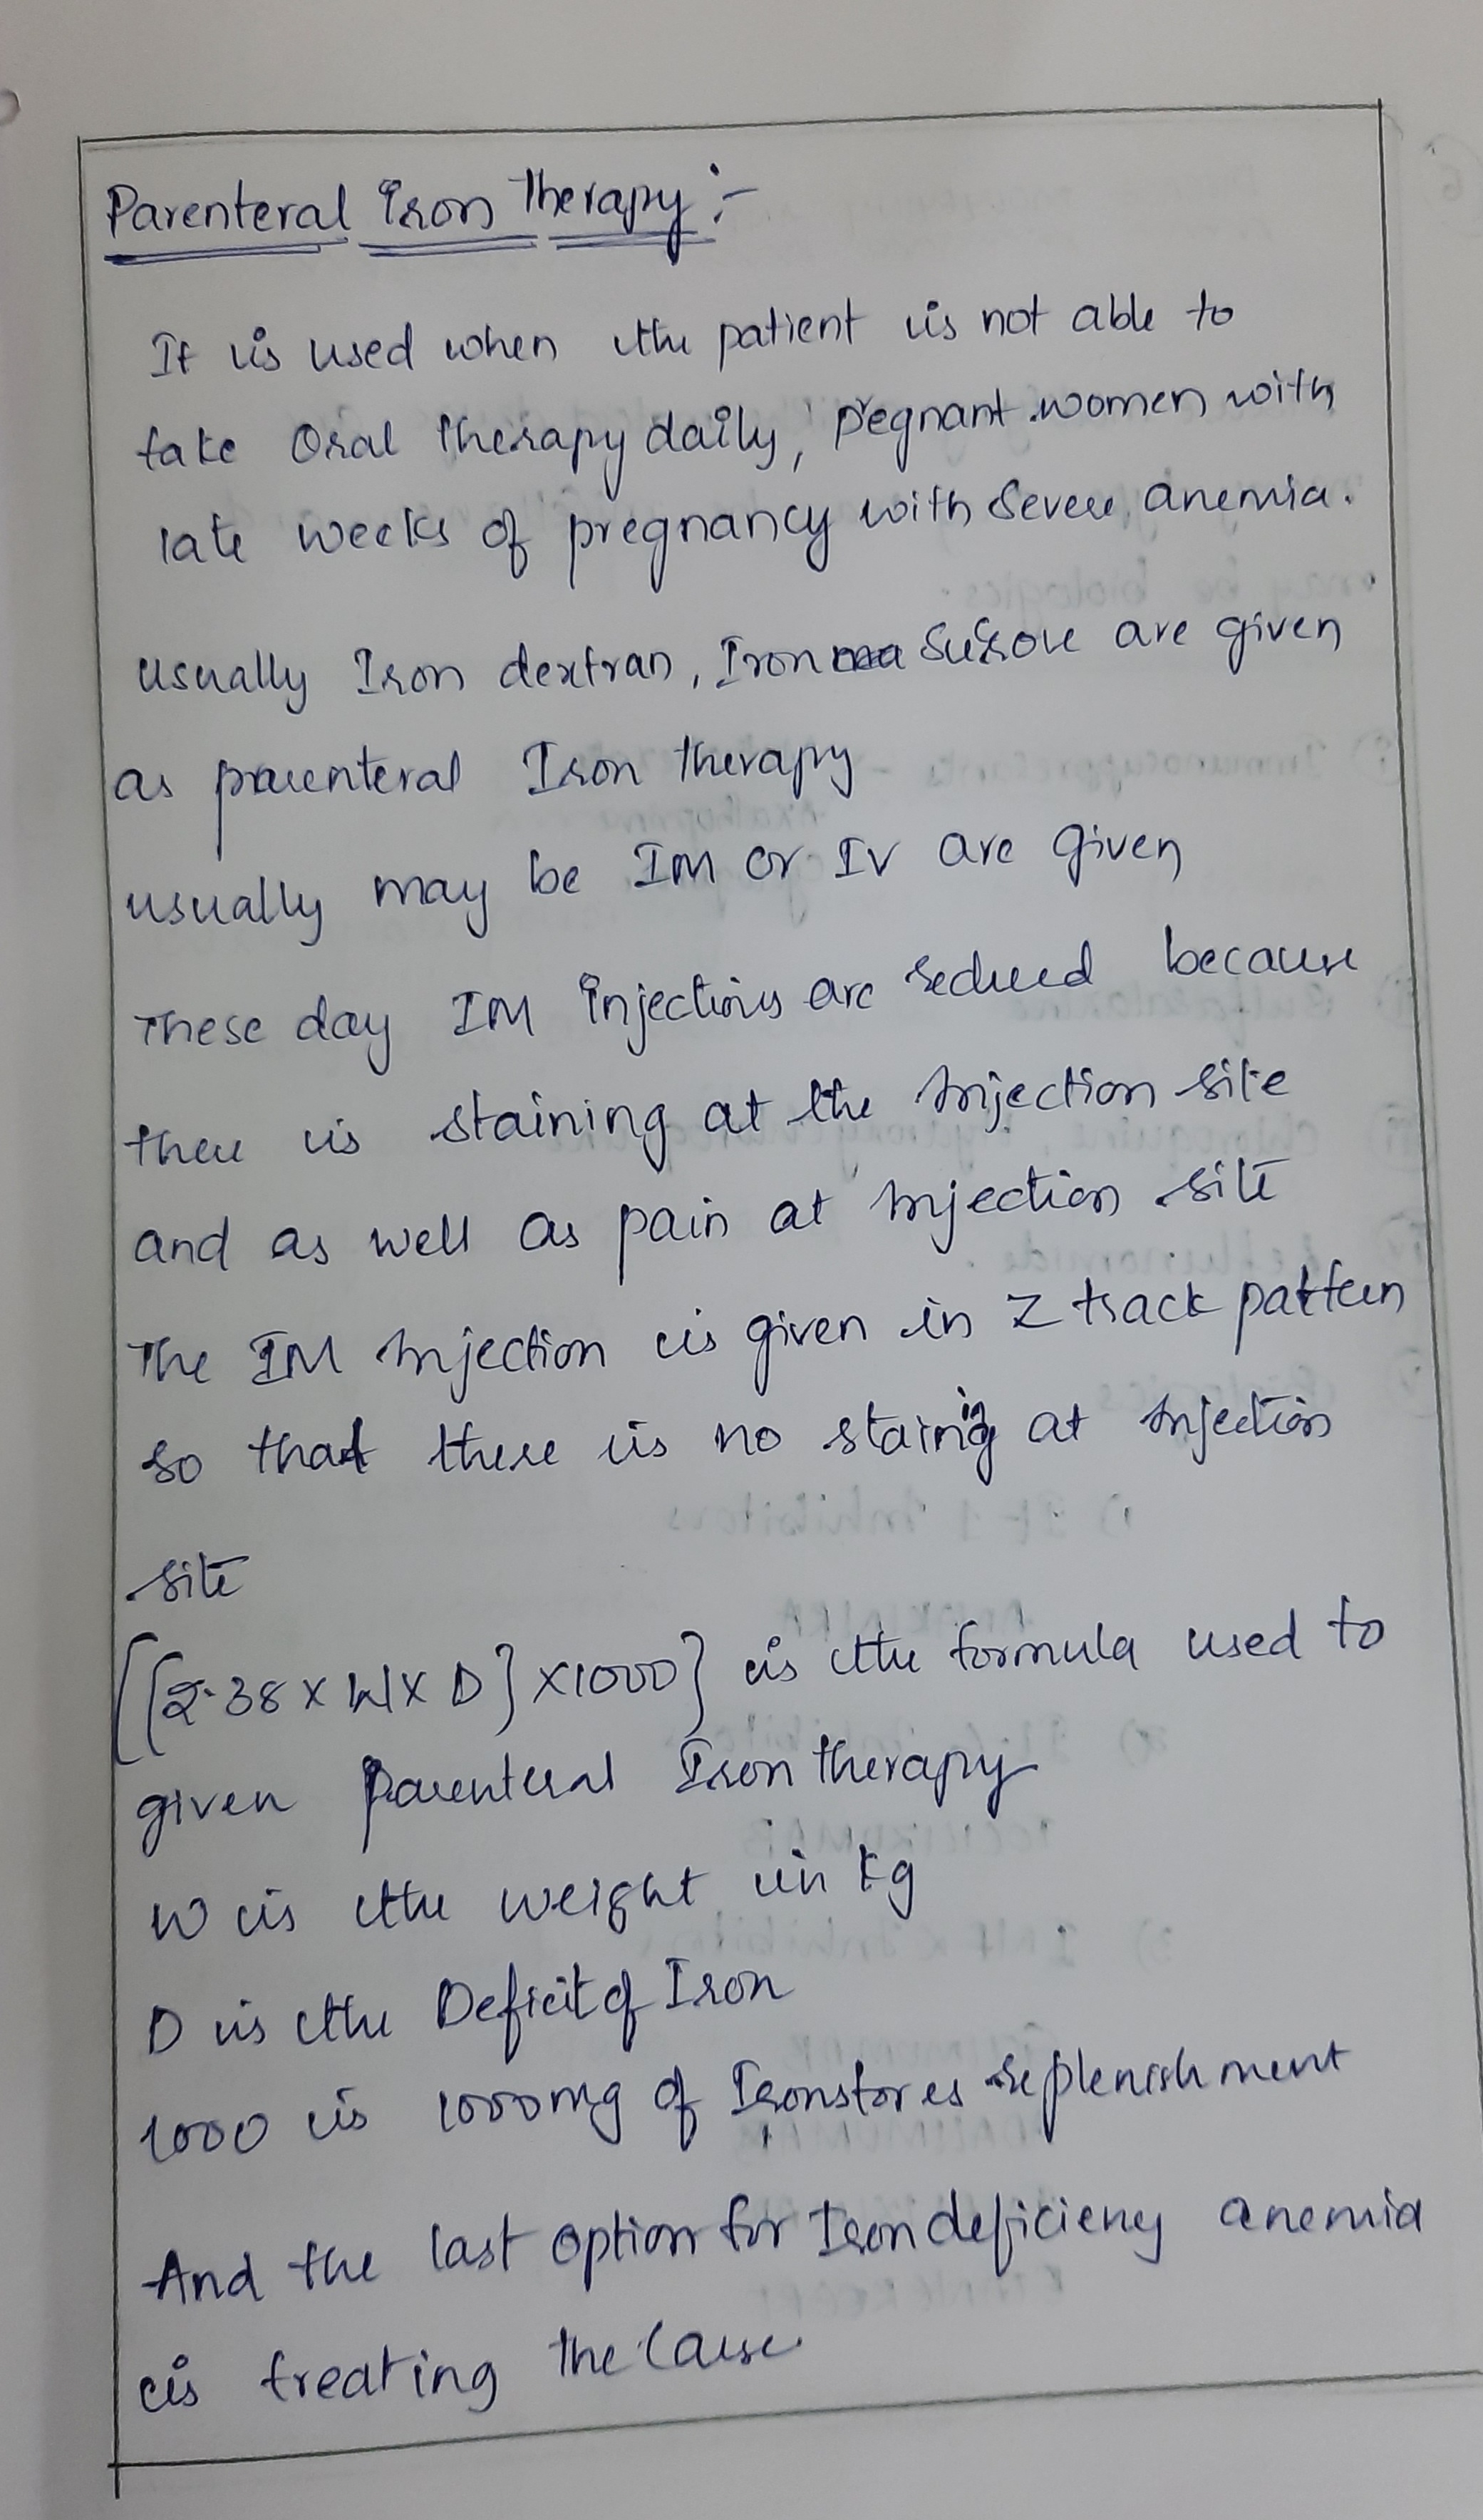 Parenteral Iron Therapy :-
It is used when the patient is not able to
take Oral therapy daily, pregnant women with
late weeks of pregnancy with severe anemia.
usually Iron dextran, Iron sucrose are given
as parenteral Iron therapy
usually may be IM or IV are given
These day IM injections are reduced because
there is staining at the injection site
and as well as pain at injection site
The IM injection is given in Z track pattern
so that there is no staining at injection
site
[[2.38 x W x D] x 1000] is the formula used to
given parenteral Iron therapy
W is the weight in kg
D is the Deficit of Iron
1000 is 1000mg of Iron stores replenishment
And the last option for Iron deficieny anemia
is treating the cause